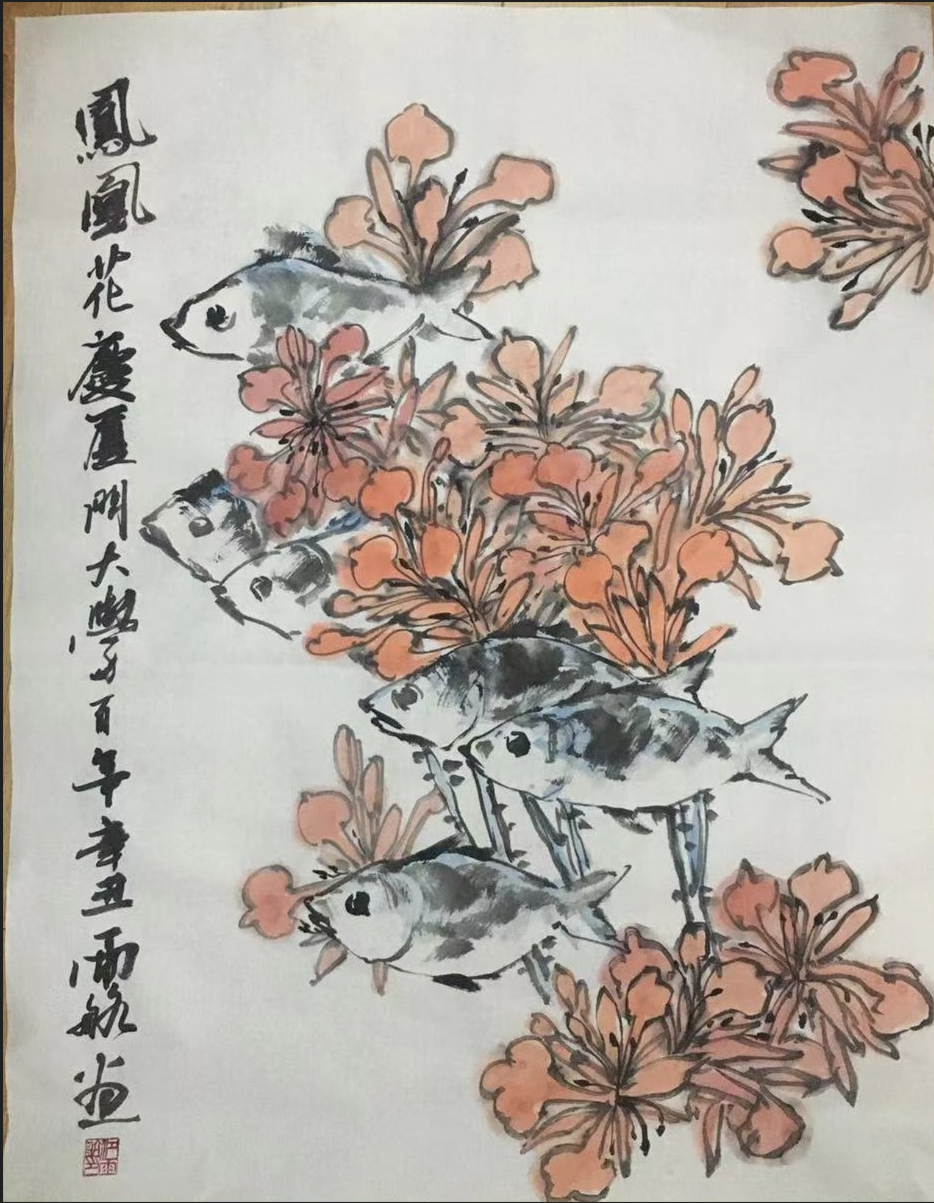 鳳凰花慶厦門大學百年辛丑雨航畫